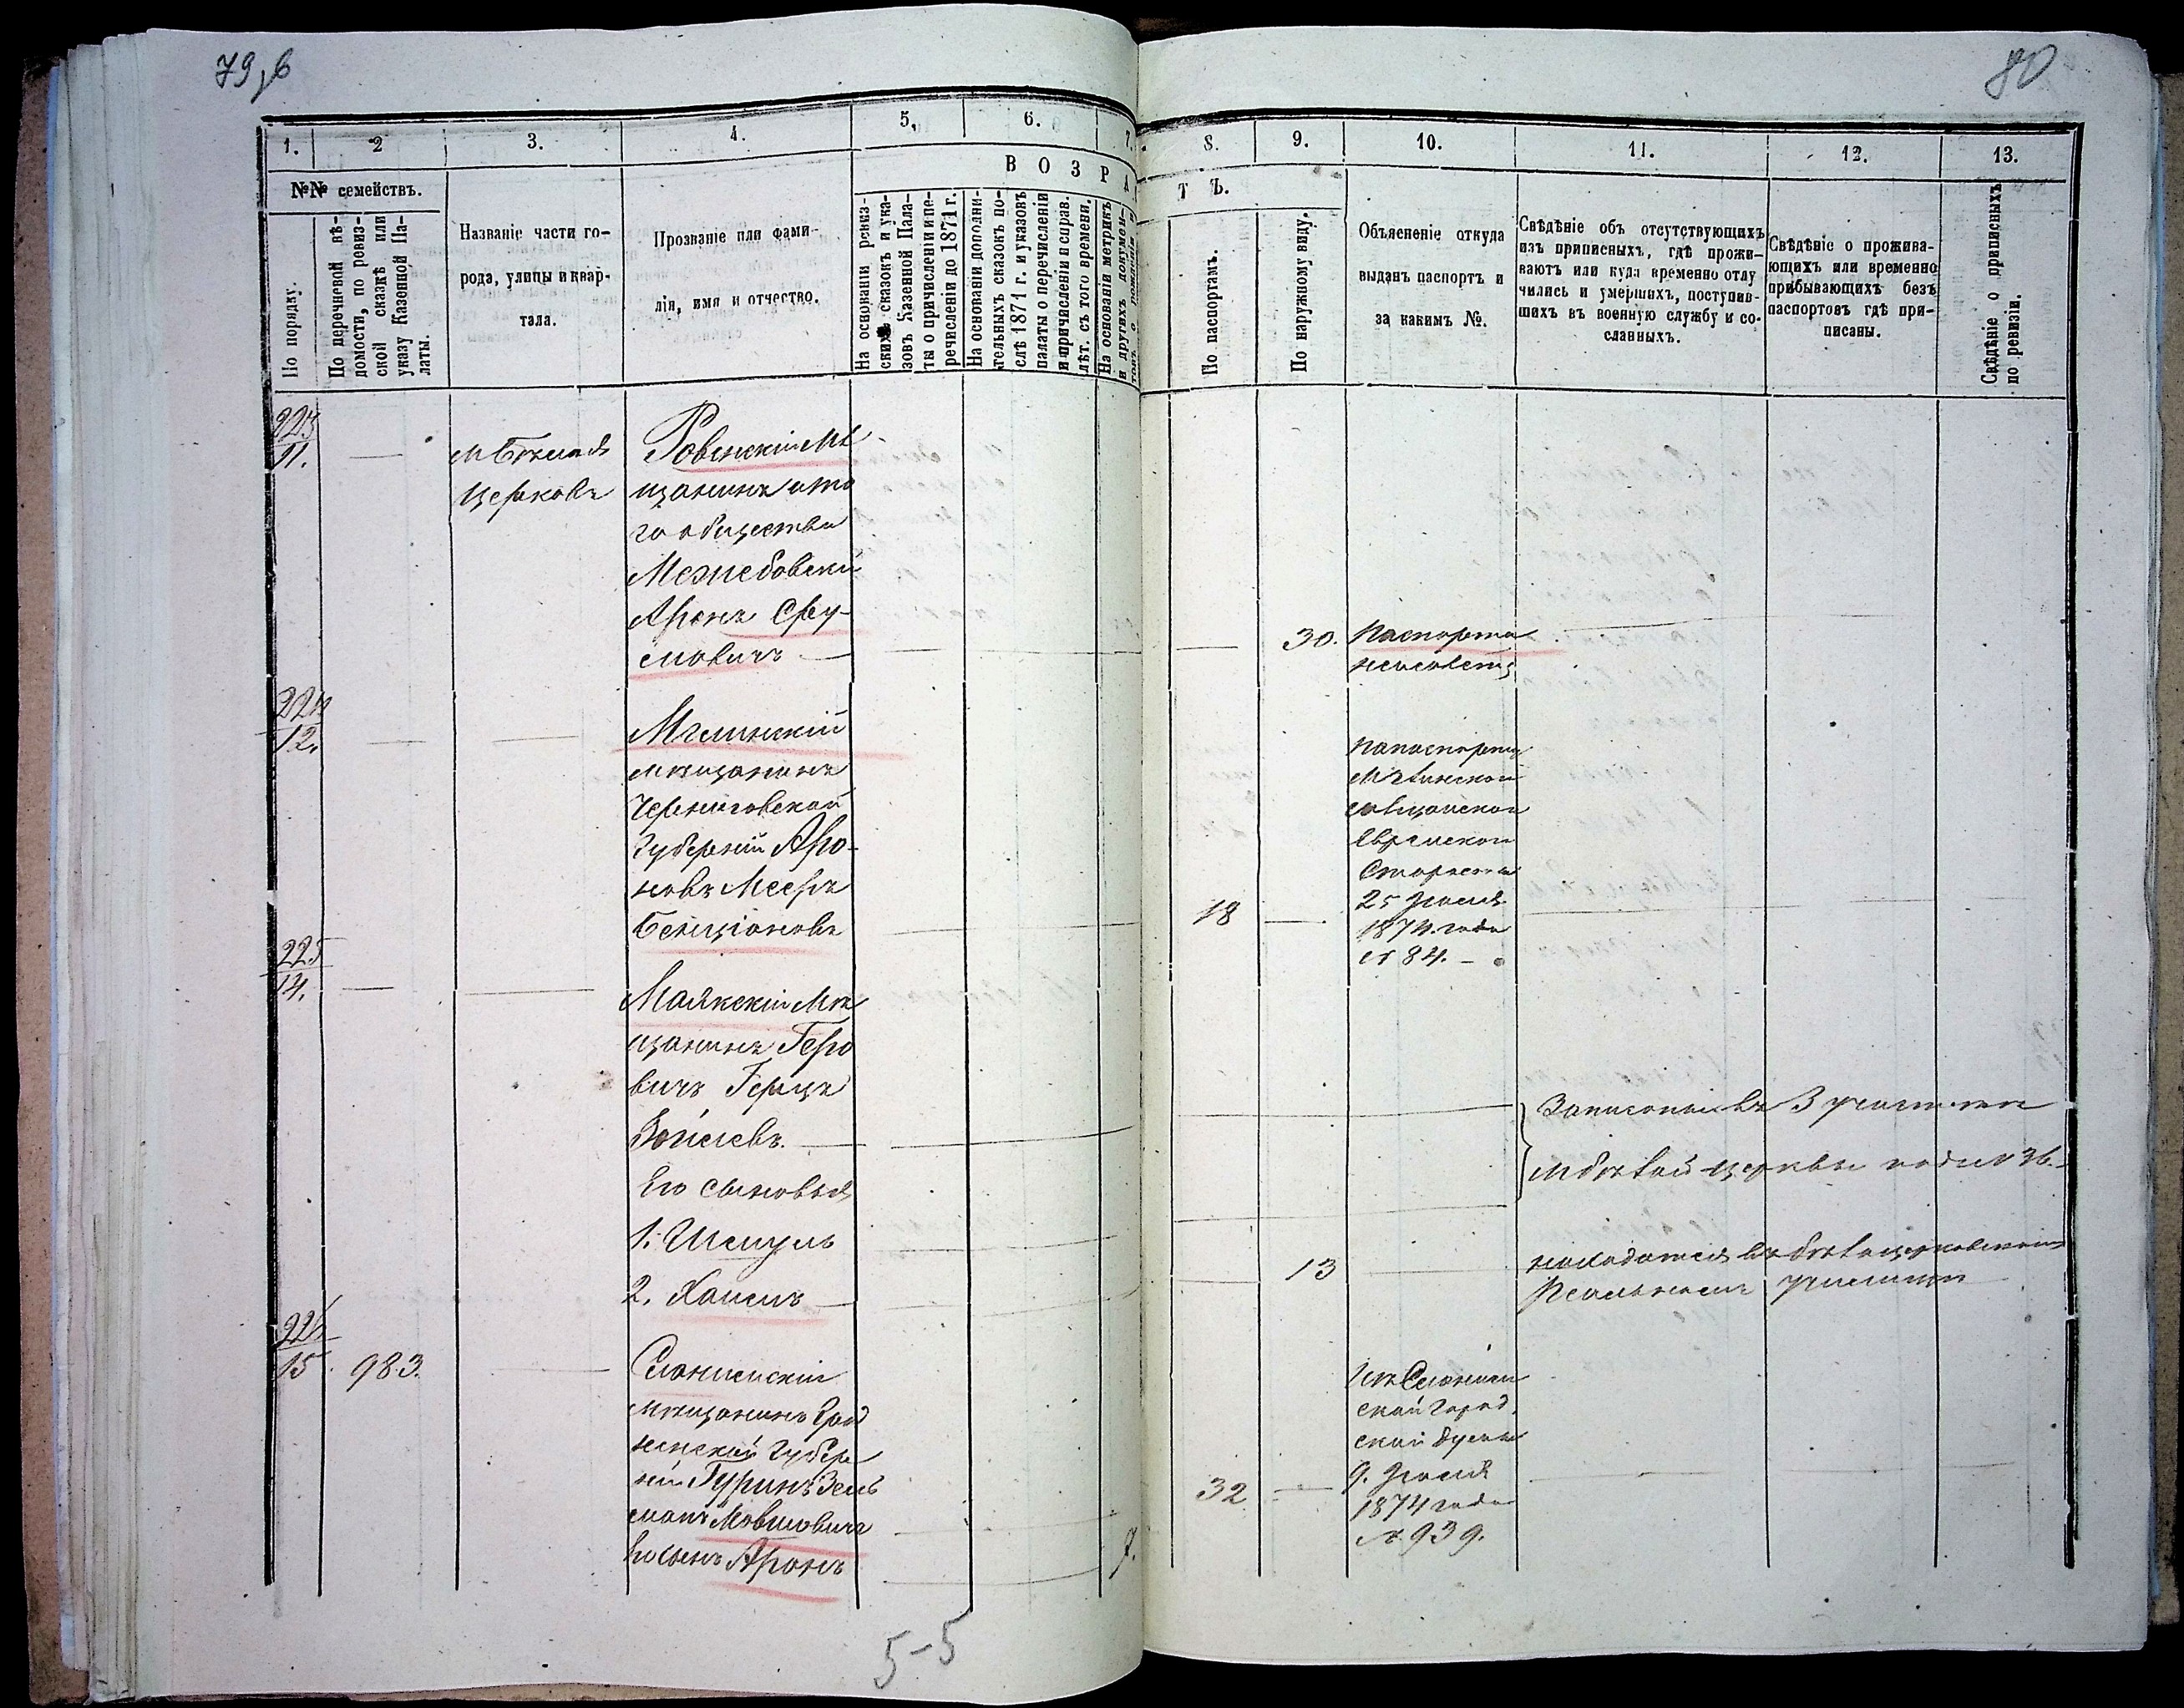 79,б
80
1.
2
3.
4.
5.
6.
7.
8.
9.
10.
11.
12.
13.
№№ семействъ.
ВОЗРА
ТЪ.
По порядку.
По перечневой вѣ-
домости, по ревиз-
ской сказкѣ или
указу Казенной Па-
латы.
Названіе части го-
рода, улицы и квар-
тала.
Прозваніе или фами-
лія, имя и отчество.
На основаніи ревиз-
скихъ сказокъ и ука-
зовъ Казенной Пала-
ты о причисленіи и пе-
речисленіи до 1871 г.
На основаніи дополни-
тельныхъ сказокъ по-
слѣ 1871 г. и указовъ
палаты о перечисленіи
и причисленіи справ.
лѣт. съ того времени.
На основаніи метрикъ
и другихъ докумен-
товъ о рожденіи
По паспортамъ.
По наружному виду.
Объясненіе откуда
выданъ паспортъ и
за какимъ №.
Свѣдѣніе объ отсутствующихъ
изъ приписныхъ, гдѣ прожи-
ваютъ или куда временно отлу
чились и умершихъ, поступив-
шихъ въ военную службу и со-
сланныхъ.
Свѣдѣніе о прожива-
ющихъ или временно
прибывающихъ безъ
паспортовъ гдѣ при-
писаны.
Свѣдѣніе о приписныхъ
по ревизіи.
223
11.
Церковь
Ровенскій Мѣ
щанинъ
го общества
Межебовскій
Аронъ Сру-
левичъ
30.
Паспорта
224
12.
Мглинскій
мѣщанинъ
Черниговской
Губерніи Аро-
новъ Мееръ
Бенціоновъ
18
Мглинской
Еврейской
25 Іюля
1874. года
№ 84.
225
14.
Маякскій Мѣ
щанинъ Геро
вичъ Герцъ
Зейлевъ.
Его сыновья
1. Шмуль
2. Хаимъ
Записаны въ 3 участкѣ
м бѣлой церкви подъ № 36.
13
находится въ бѣлоцерковскомъ
Реальномъ училищѣ
226
15.
983.
Слонимскій
мѣщанинъ Грод
ненской Губер
ніи Гуринъ Зель
манъ Мовшовичъ
Его сынъ Аронъ
7.
32
Изъ Слоним
ской Город.
ской думы
9. Іюля
1874 года
№ 939.
5-5